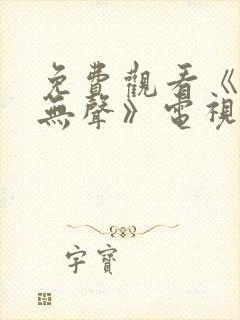 免費觀看《
無聲》電視
字寶